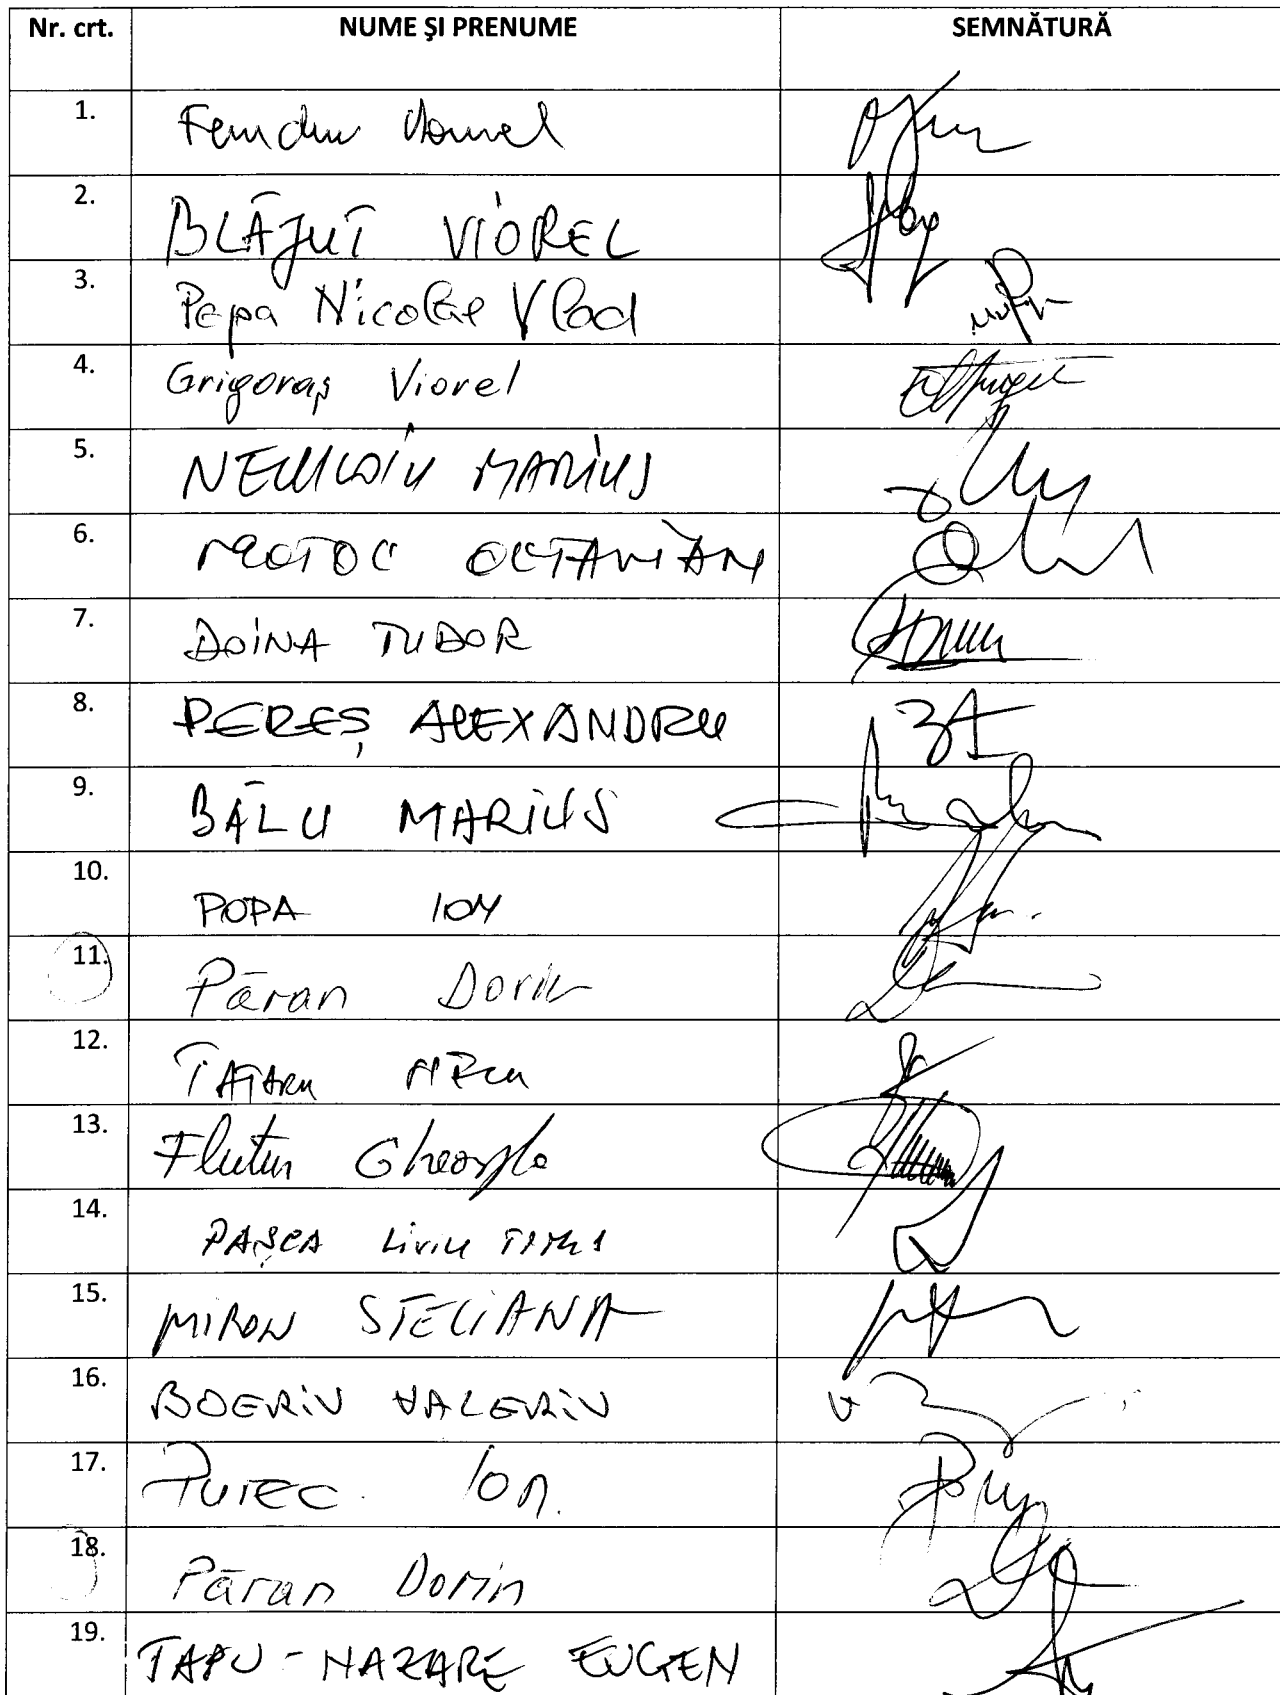 Nr. crt. NUME ŞI PRENUME SEMNĂTURĂ
1.
2. BLĂJUȚ VIOREL
3. Pepa Nicolae Vlad
4. Grigoraş Viorel
5. NECULOIU MARIUS
6. MOTOC OCTAVIAN
7. DOINA TUDOR
8. PEREŞ ALEXANDRU
9. BĂLU MARIUS
10. POPA ION
11. Păran Dorin
12. TĂTARU NECU
13. Flutur Gheorghe
14. PAŞCA Liviu TITUS
15. MIRON STELIANA
16. BOERIU VALERIU
17. PUIEC ION.
18. Păran Dorin
19. TAPU-NAZARE EUGEN